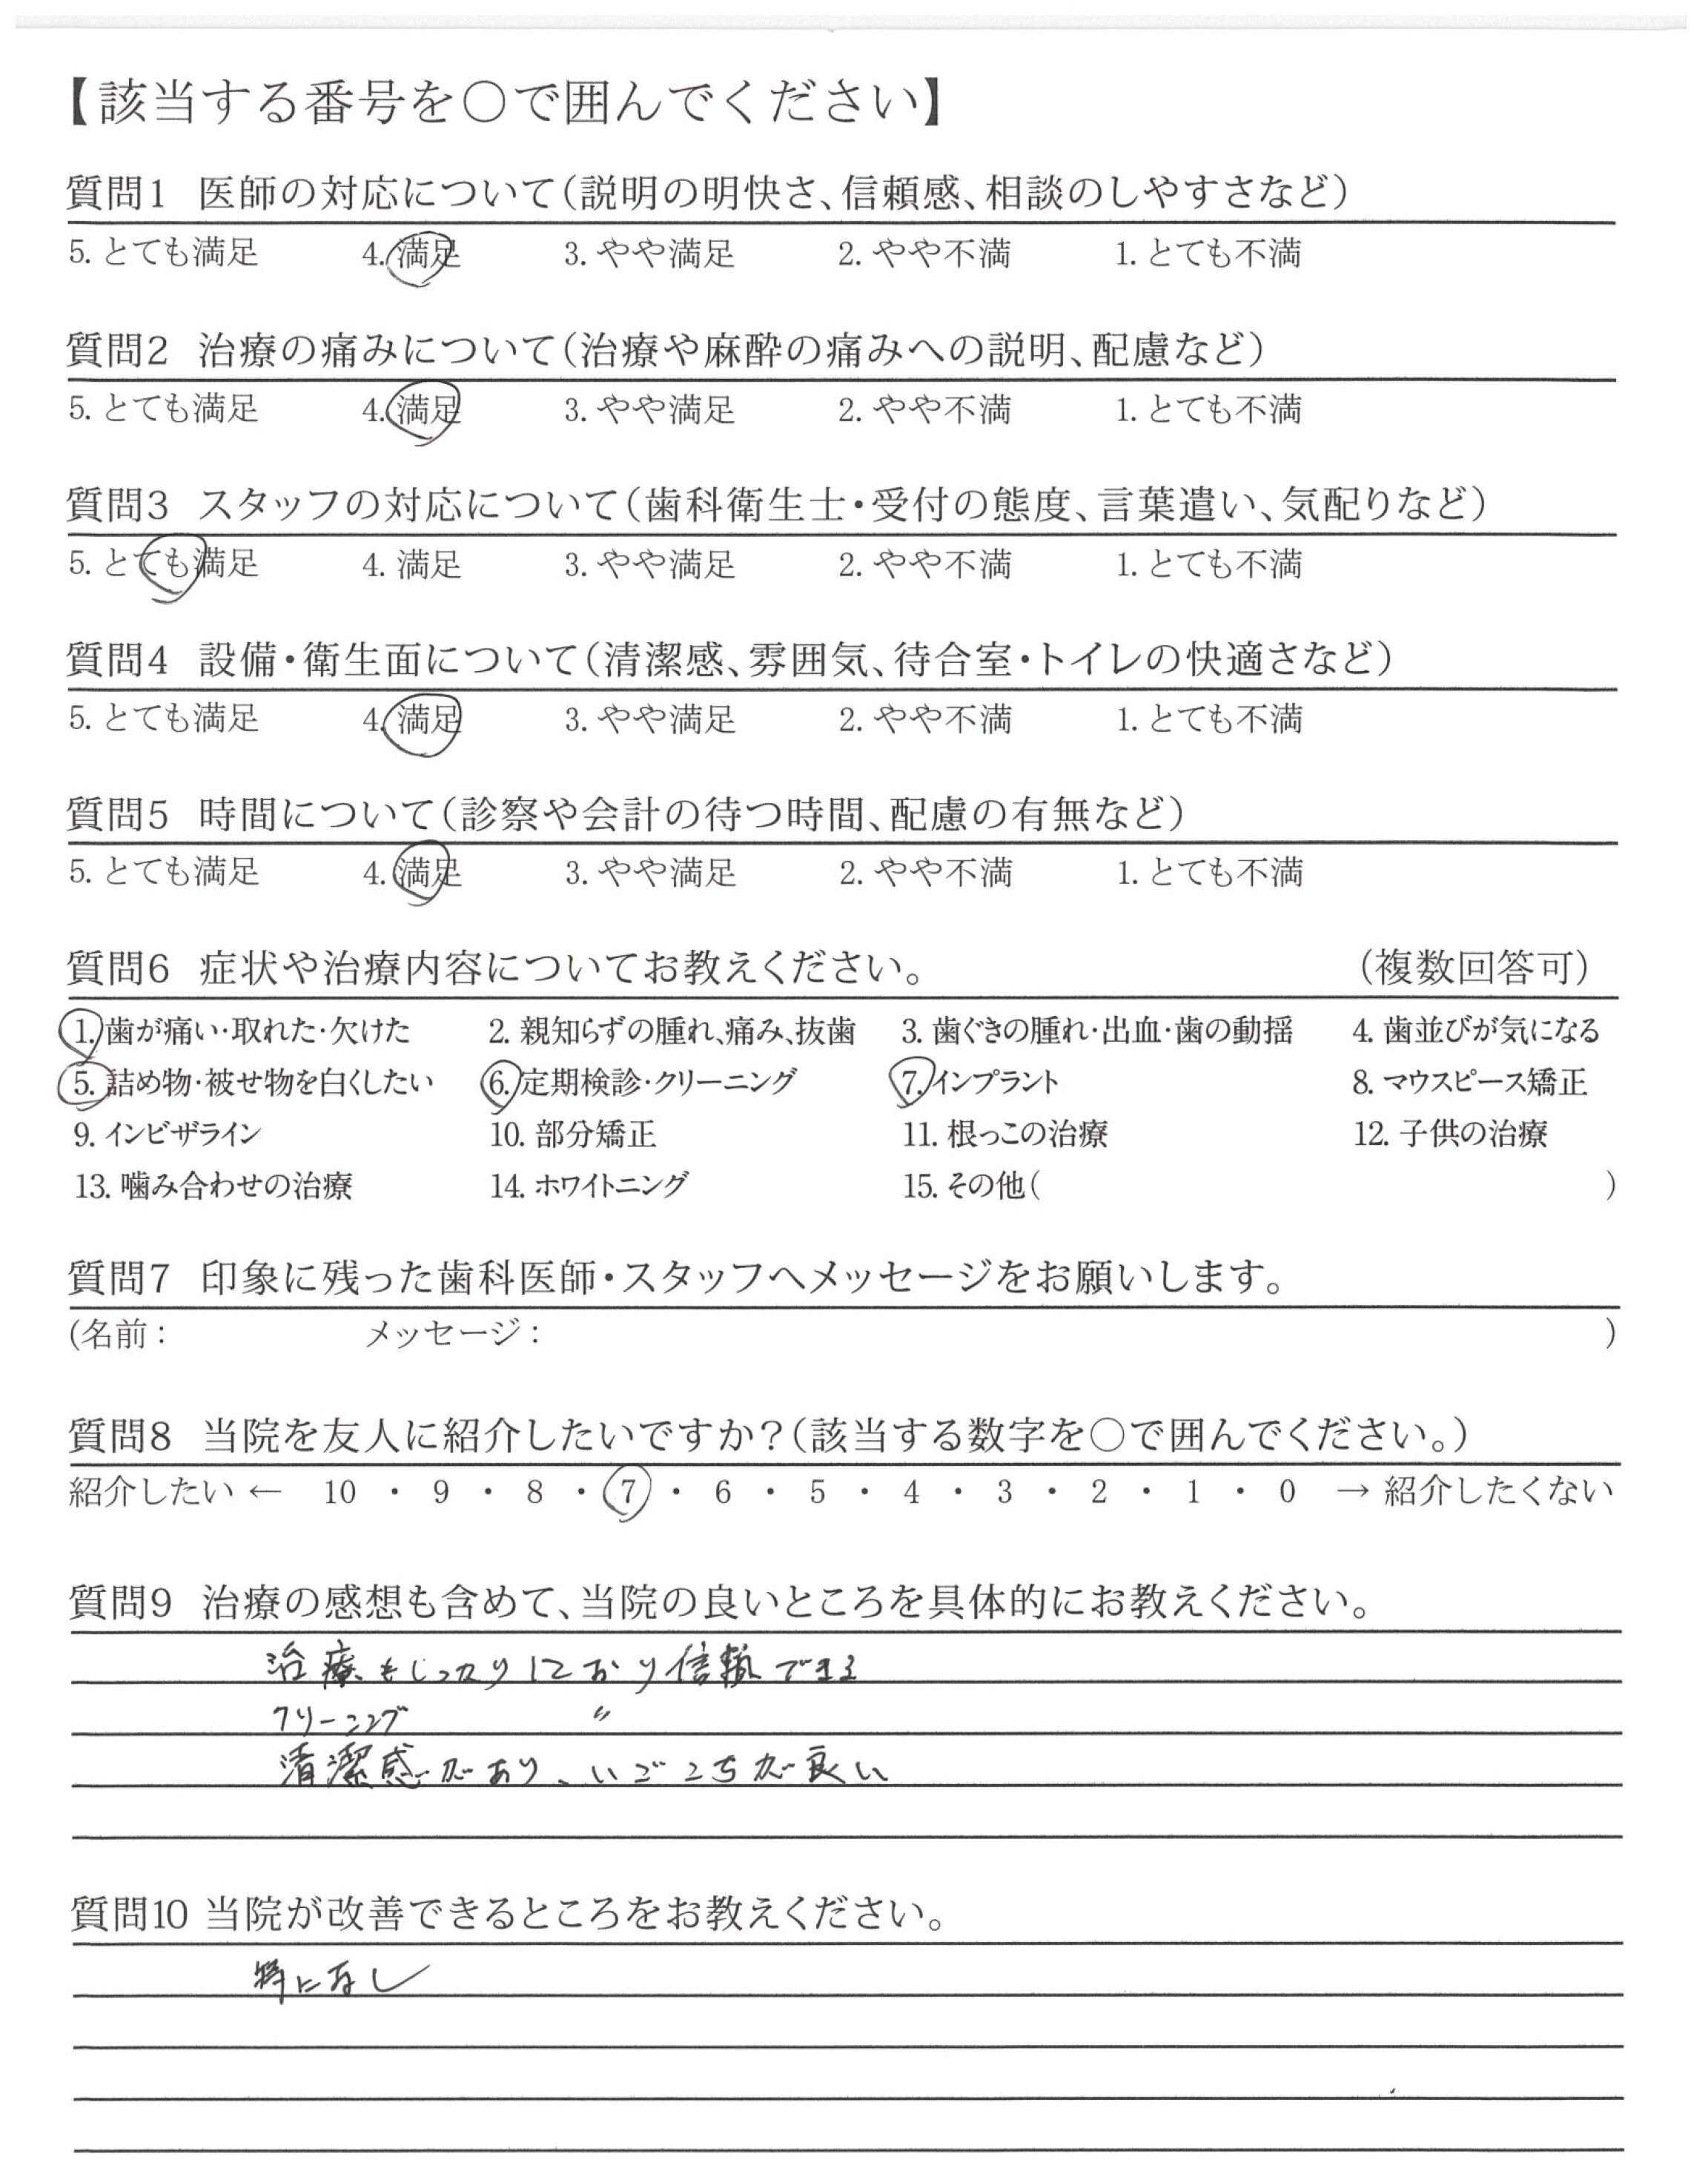 【該当する番号を○で囲んでください】
質問1 医師の対応について（説明の明快さ、信頼感、相談のしやすさなど）
5. とても満足 4. 満足 3. やや満足 2. やや不満 1. とても不満
質問2 治療の痛みについて（治療や麻酔の痛みへの説明、配慮など）
5. とても満足 4. 満足 3. やや満足 2. やや不満 1. とても不満
質問3 スタッフの対応について（歯科衛生士・受付の態度、言葉遣い、気配りなど）
5. とても満足 4. 満足 3. やや満足 2. やや不満 1. とても不満
質問4 設備・衛生面について（清潔感、雰囲気、待合室・トイレの快適さなど）
5. とても満足 4. 満足 3. やや満足 2. やや不満 1. とても不満
質問5 時間について（診察や会計の待つ時間、配慮の有無など）
5. とても満足 4. 満足 3. やや満足 2. やや不満 1. とても不満
質問6 症状や治療内容についてお教えください。 （複数回答可）
1. 歯が痛い・取れた・欠けた 2. 親知らずの腫れ、痛み、抜歯 3. 歯ぐきの腫れ・出血・歯の動揺 4. 歯並びが気になる
5. 詰め物・被せ物を白くしたい 6. 定期検診・クリーニング 7. インプラント 8. マウスピース矯正
9. インビザライン 10. 部分矯正 11. 根っこの治療 12. 子供の治療
13. 噛み合わせの治療 14. ホワイトニング 15. その他( )
質問7 印象に残った歯科医師・スタッフへメッセージをお願いします。
(名前： メッセージ： )
質問8 当院を友人に紹介したいですか？（該当する数字を○で囲んでください。）
紹介したい ← 10 ・ 9 ・ 8 ・ 7 ・ 6 ・ 5 ・ 4 ・ 3 ・ 2 ・ 1 ・ 0 → 紹介したくない
質問9 治療の感想も含めて、当院の良いところを具体的にお教えください。
治療もしっかりしており信頼できる
クリーニング 〃
清潔感があり、いごこちが良い
質問10 当院が改善できるところをお教えください。
特になし